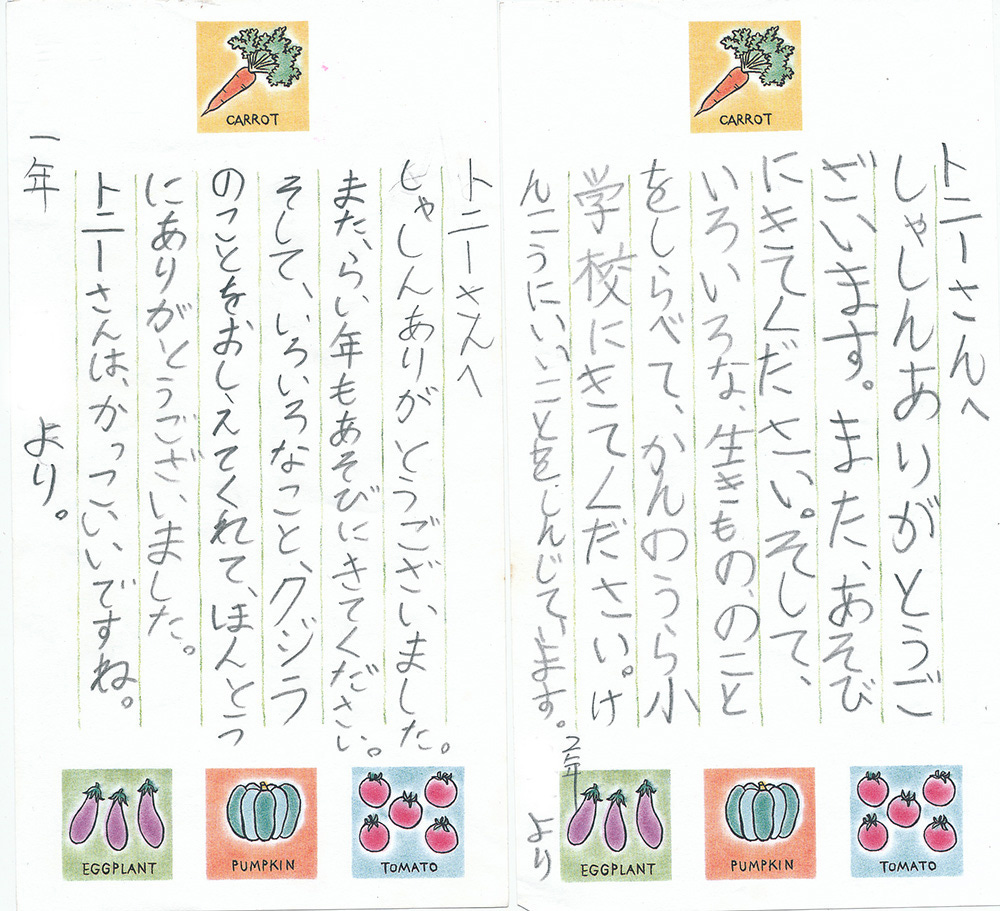 CARROT
トニーさんへ
しゃしんありがとうご
ざいます。また、あそび
にきてください。そして、
いろいろな、生きもの、のこと
をしらべて、かんのうら小
学校にきてください。け
んこうにいいことをしんじて、います。
2年
より
EGGPLANT
PUMPKIN
TOMATO
CARROT
トニーさんへ
しゃしんありがとうございました。
また、らい年もあそびにきてください。
そして、いろいろなこと、クジラ
のことをおしえてくれて、ほんとう
にありがとうございました。
トニーさんは、かっこいいですね。
一年
より。
EGGPLANT
PUMPKIN
TOMATO